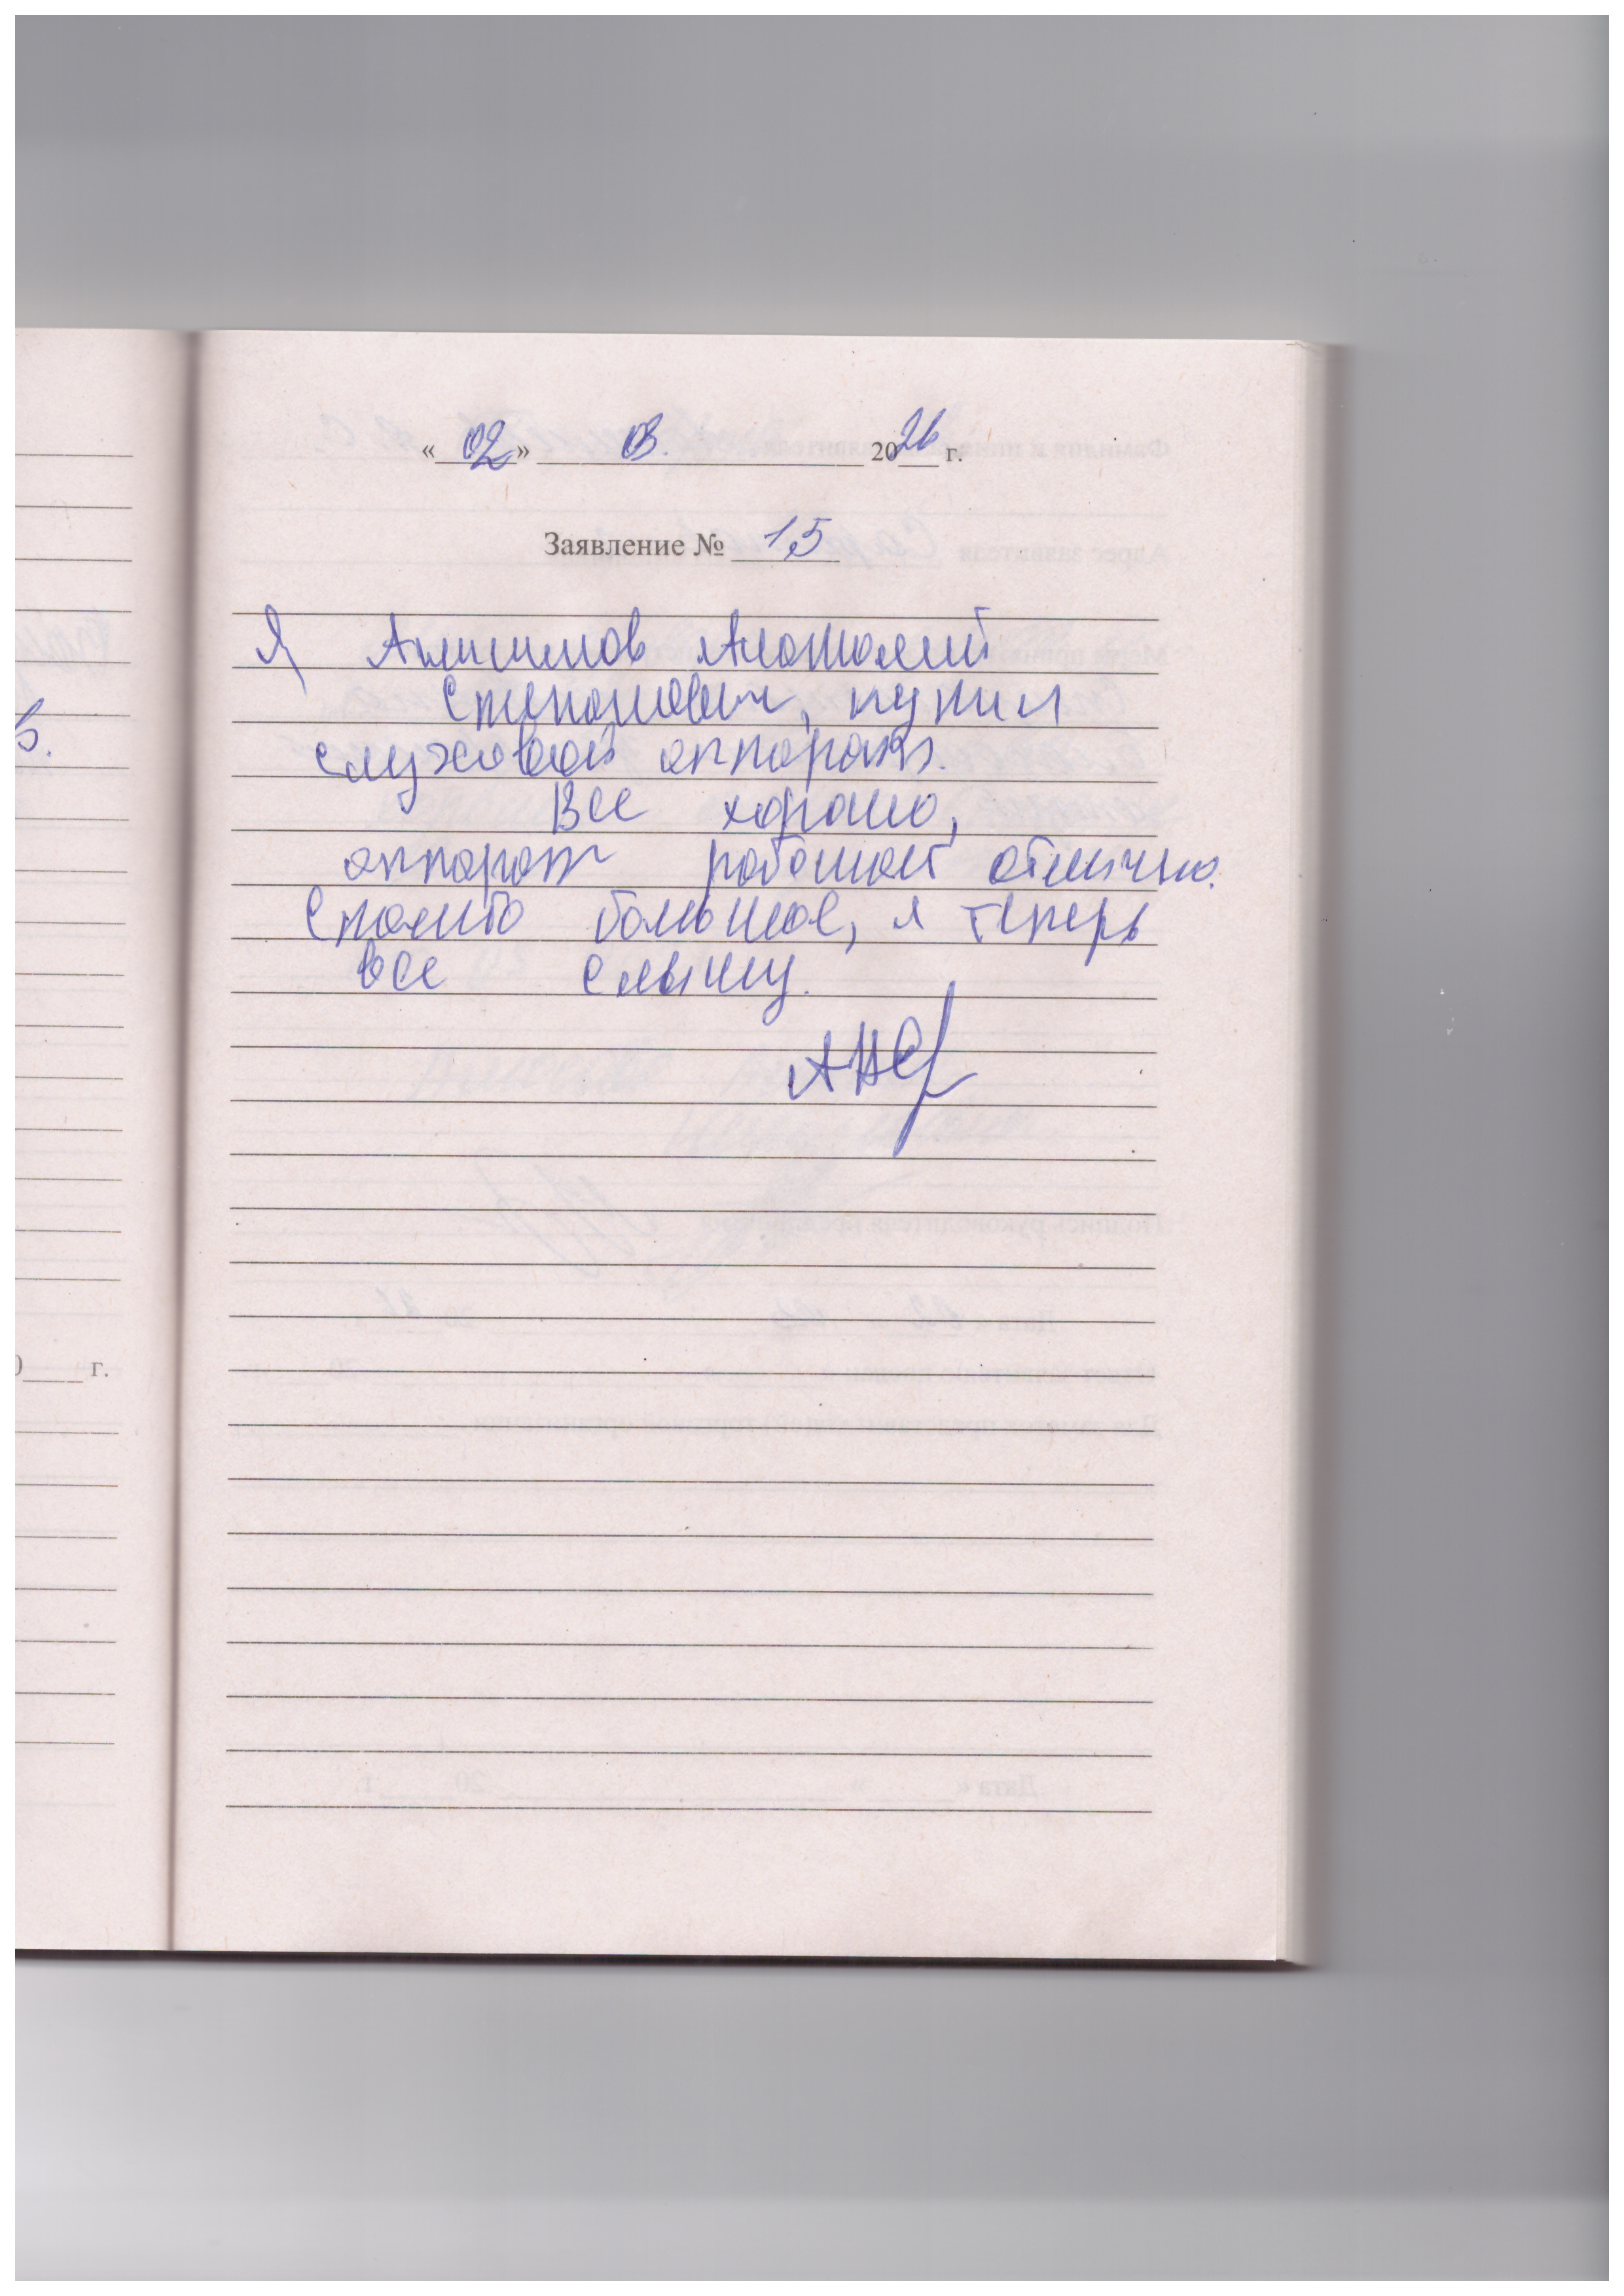 «02» 03. 2026 г.
Заявление № 15
Я Анатолий
Степанович, купил
слуховой аппарат.
Все хорошо,
аппарат работает отлично.
Спасибо большое, я теперь
все слышу.
г.